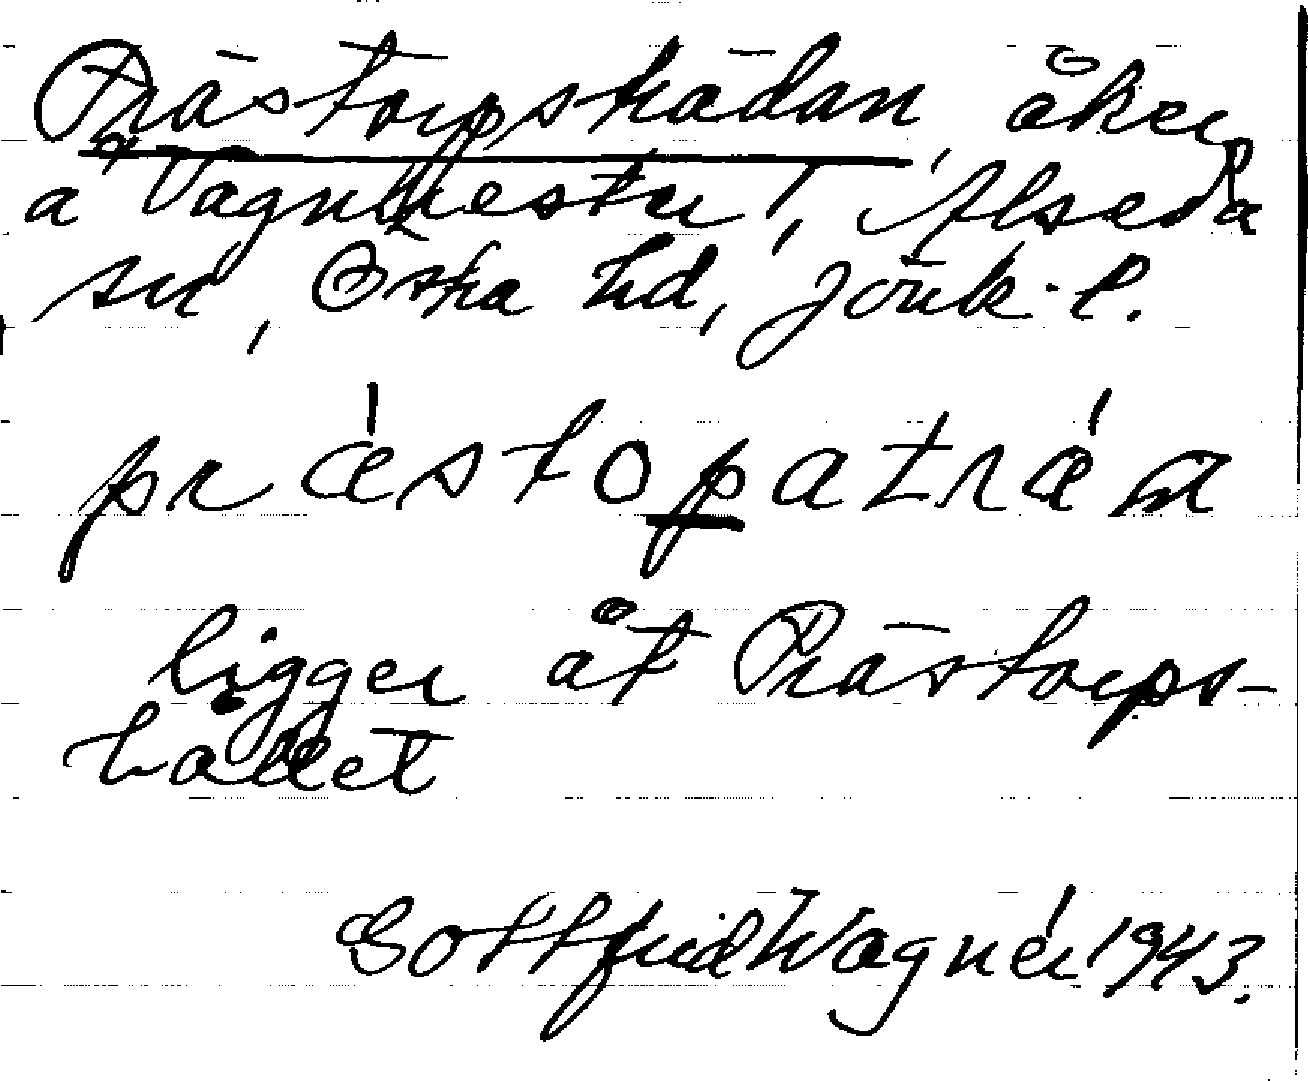 Prästorpskädan åker
å Vagnhester, Alseda
sn, Östra hd, Jönk. l.
præstopatræn
ligger åt Prästorps-
hållet
Gottfrid Wagnér 1943.